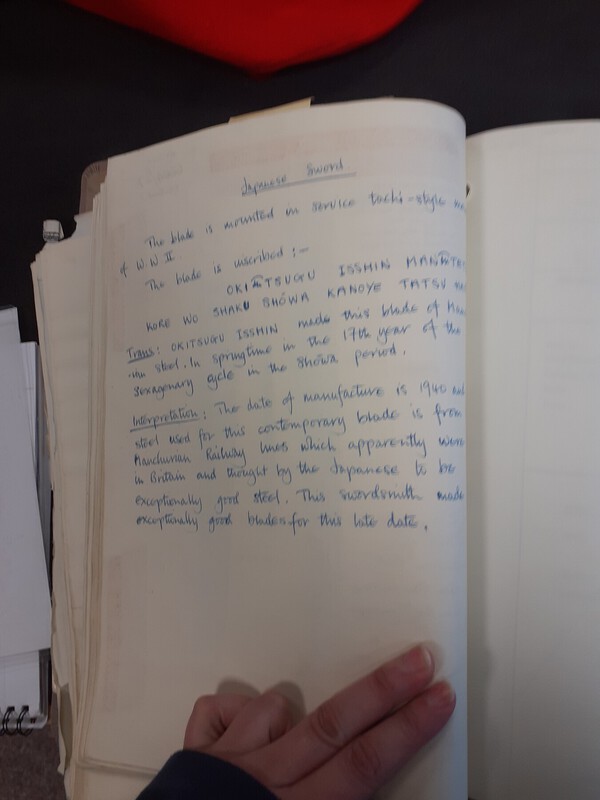 Japanese Sword
The blade is mounted in service tachi-style
of W.W II.
The blade is inscribed :-
OKITSUGU ISSHIN
KORE WO SHAKU SHŌWA KANOYE TATSU
Trans: OKITSUGU ISSHIN made this blade of
steel. In springtime in the 17th year of the
Sexagenary cycle in the Shōwa period.
Interpretation: The date of manufacture is 1940 and
steel used for this contemporary blade is from
Manchurian Railway lines which apparently were
in Britain and thought by the Japanese to be
exceptionally good steel. This swordsmith made
exceptionally good blades for this late date.